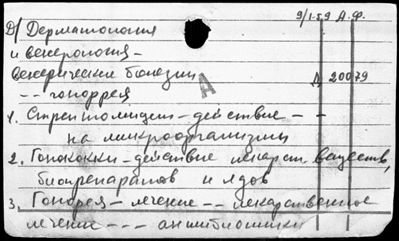 9/1-59 А.Ф.
Д/ Дерматология
и венерология -
Венерические болезни
А 20079
А
-- гоноррея
1. Стрептомицин - действие - -
на микроорганизмы
2. Гонококки - действие лекарств. веществ,
биопрепаратов и ядов
3. Гонорея - лечение -- лекарственное
лечение --- антибиотики